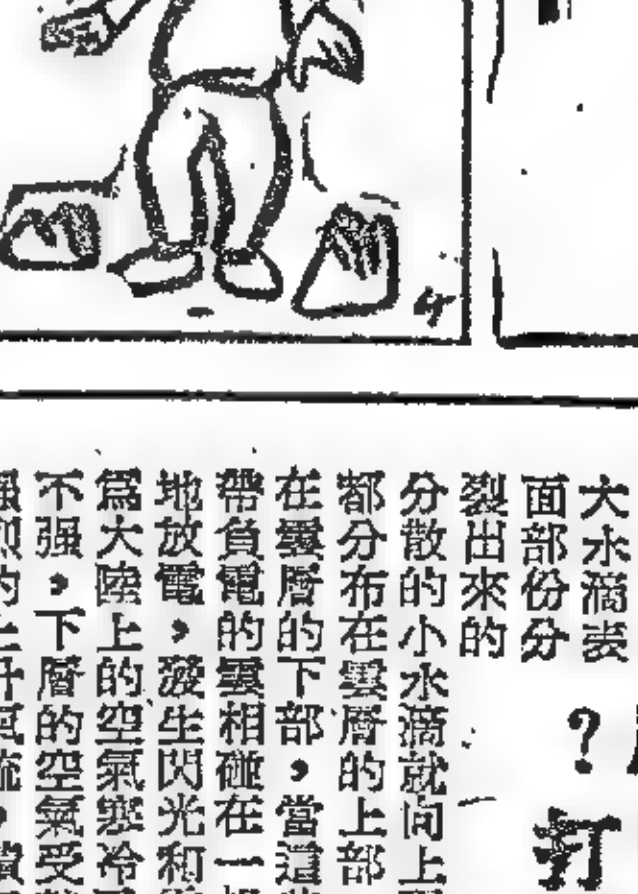 大水滴表
面部份分
裂出來的
分散的小水滴就向上
都分布在雲層的上部
在雲層的下部，當這
帶負電的雲相碰在一
地放電，發生閃光和
爲大陸上的空氣寒冷
不强，下層的空氣受
强烈的上升氣流，
？打